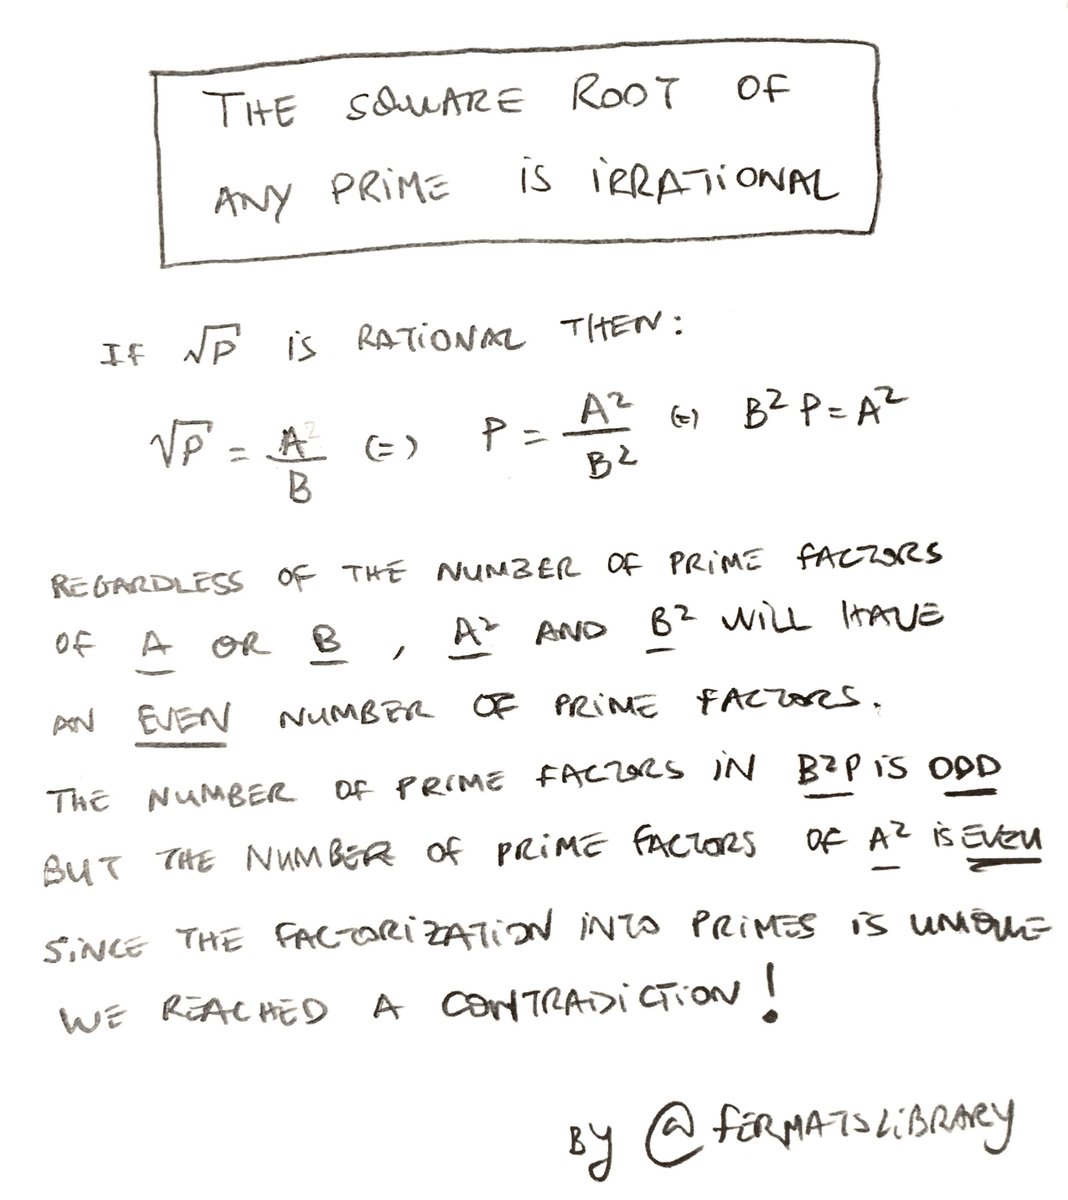 THE SQUARE ROOT OF
ANY PRIME IS IRRATIONAL
IF √P IS RATIONAL THEN:
√P = A/B (=) P = A²/B² (=) B²P = A²
REGARDLESS OF THE NUMBER OF PRIME FACTORS
OF A OR B, A² AND B² WILL HAVE
AN EVEN NUMBER OF PRIME FACTORS.
THE NUMBER OF PRIME FACTORS IN B²P IS ODD
BUT THE NUMBER OF PRIME FACTORS OF A² IS EVEN
SINCE THE FACTORIZATION INTO PRIMES IS UNIQUE
WE REACHED A CONTRADICTION!
BY @FERMATSLIBRARY